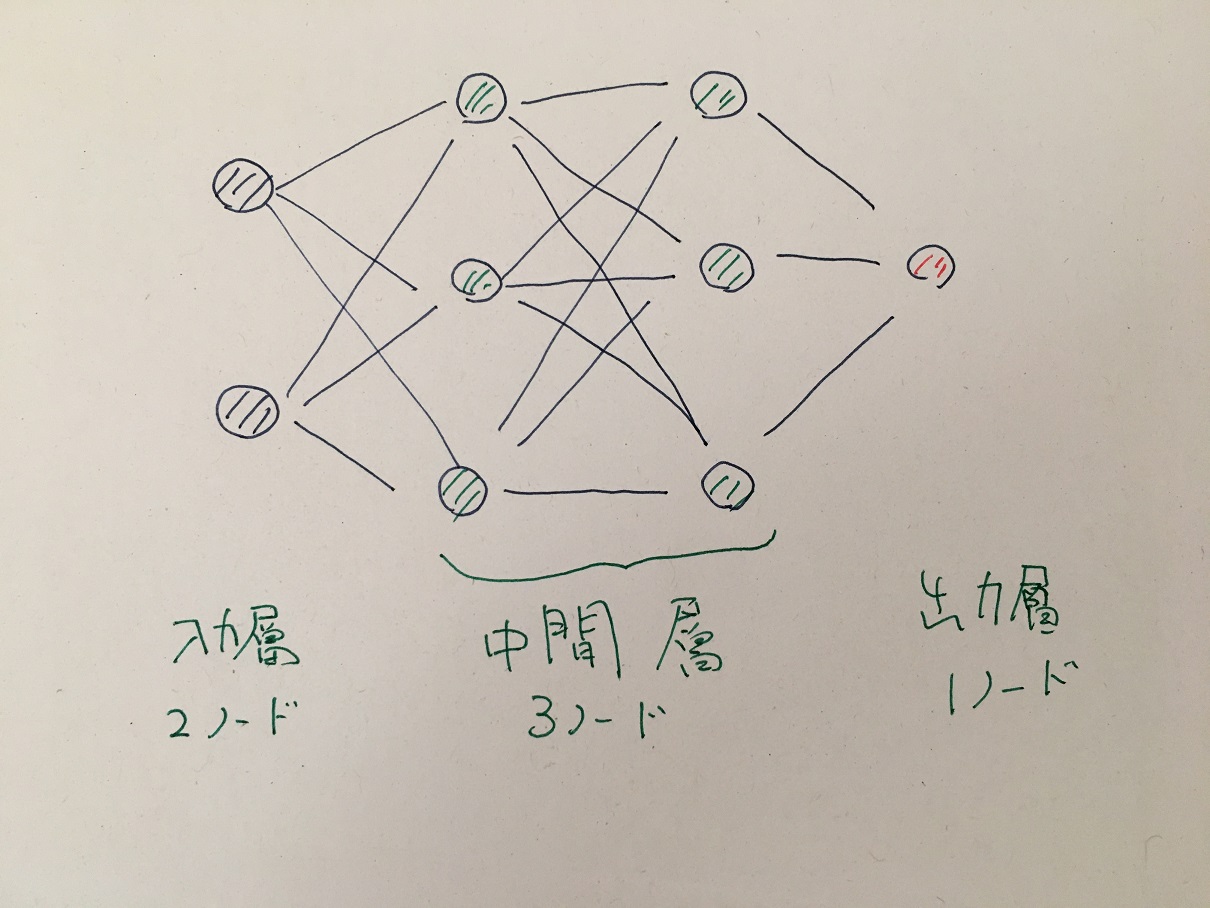 入力層
2ノード
中間層
3ノード
出力層
1ノード